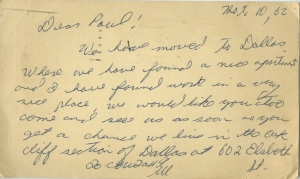 Oct 10, 62
Dear Paul!
We have moved to Dallas,
where we have found a nice apartment
and I have found work in a very
nice place, we would like you to
come and see us as soon as you
get a chance we live in the Oak
cliff section of Dallas at 602 Elsbeth
St.